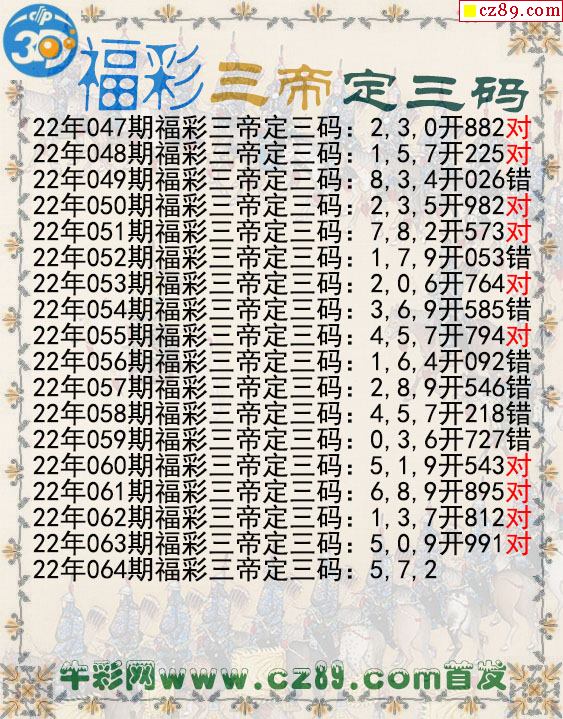 cz89.com
3D
福彩三帝定三码
22年047期福彩三帝定三码：2,3,0开882对
22年048期福彩三帝定三码：1,5,7开225对
22年049期福彩三帝定三码：8,3,4开026错
22年050期福彩三帝定三码：2,3,5开982对
22年051期福彩三帝定三码：7,8,2开573对
22年052期福彩三帝定三码：1,7,9开053错
22年053期福彩三帝定三码：2,0,6开764对
22年054期福彩三帝定三码：3,6,9开585错
22年055期福彩三帝定三码：4,5,7开794对
22年056期福彩三帝定三码：1,6,4开092错
22年057期福彩三帝定三码：2,8,9开546错
22年058期福彩三帝定三码：4,5,7开218错
22年059期福彩三帝定三码：0,3,6开727错
22年060期福彩三帝定三码：5,1,9开543对
22年061期福彩三帝定三码：6,8,9开895对
22年062期福彩三帝定三码：1,3,7开812对
22年063期福彩三帝定三码：5,0,9开991对
22年064期福彩三帝定三码：5,7,2
牛彩网www.cz89.com首发